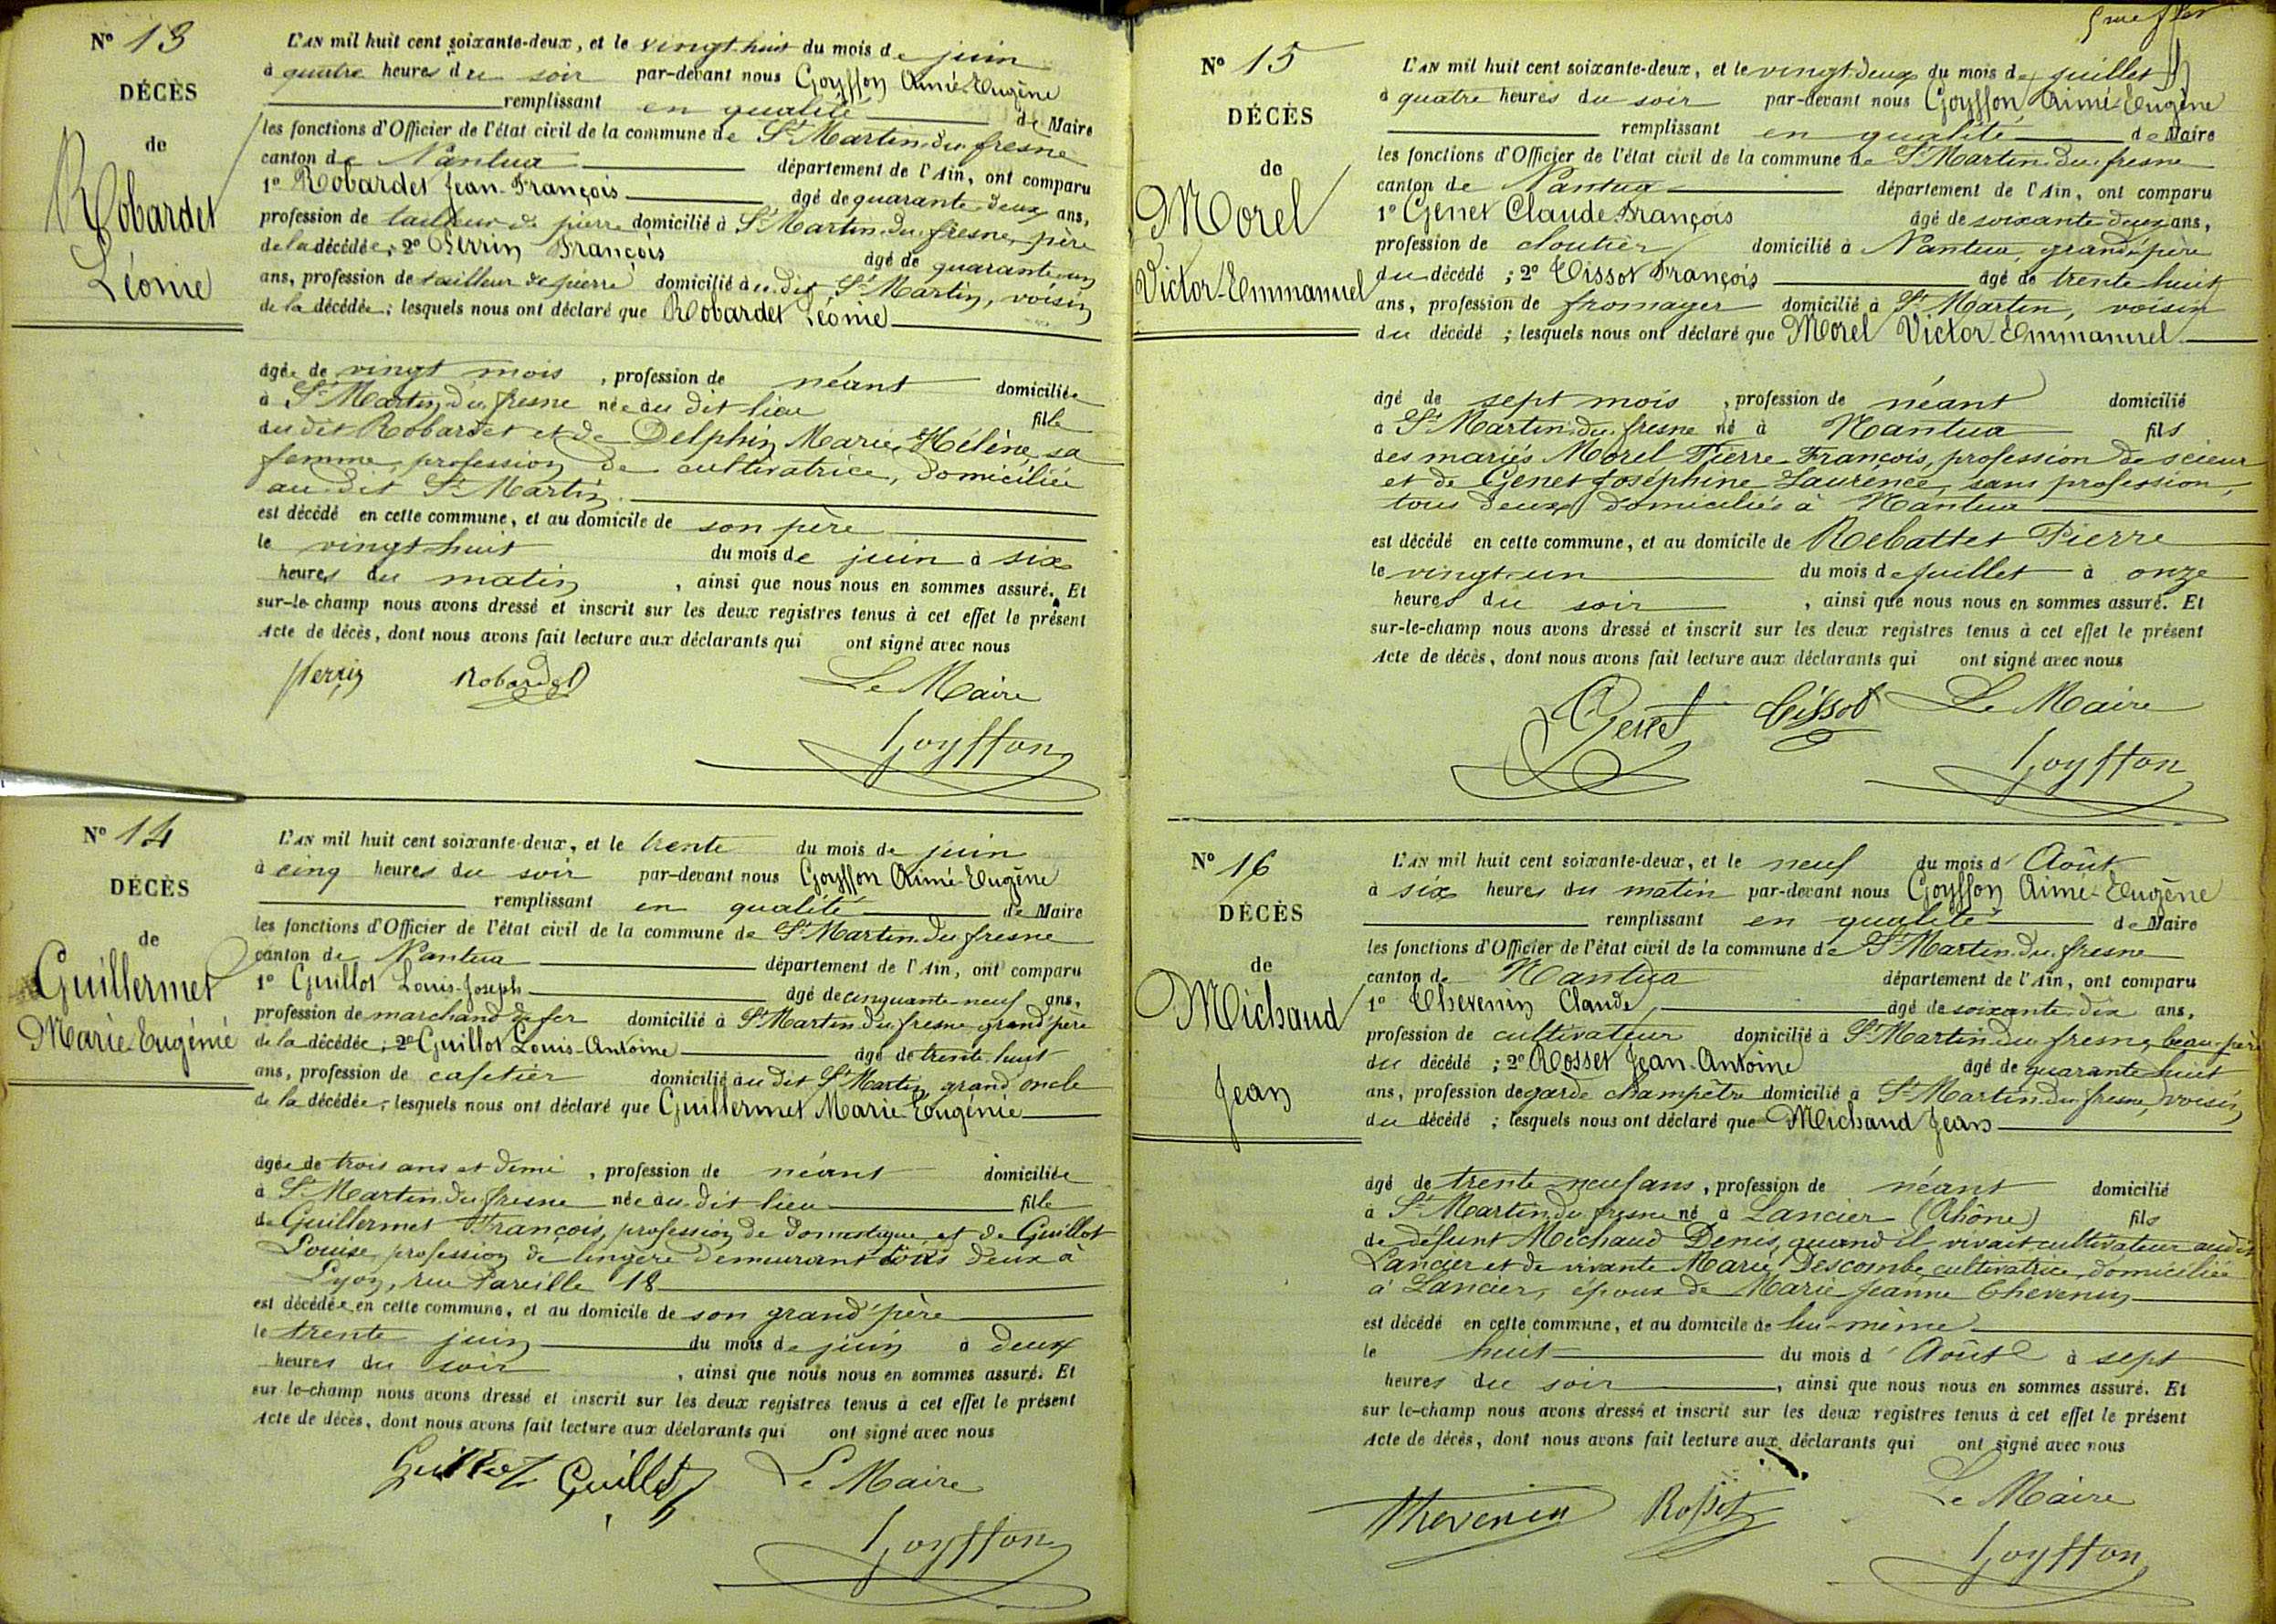 N° 13
DÉCÈS
de
Robardet
Léonie
L'AN mil huit cent soixante-deux, et le vingt-huit du mois de juin
à quatre heures du soir par-devant nous Goyffon Aimé-Eugène
remplissant en qualité de Maire
les fonctions d'Officier de l'état civil de la commune de St Martin-du-fresne
canton de Nantua département de l'Ain, ont comparu
1° Robardet Jean-François âgé de quarante-deux ans,
profession de tailleur de pierre domicilié à St Martin-du-fresne, père
de la décédée; 2° Perrin François âgé de quarante-un
ans, profession de tailleur de pierre domicilié au dit St Martin, voisin
de la décédée; lesquels nous ont déclaré que Robardet Léonie
âgée de vingt mois, profession de néant domiciliée
à St Martin-du-fresne née au dit lieu fille
du dit Robardet et de Delphin Marie-Hélène, sa
femme, profession de cultivatrice, domiciliée
au dit St Martin.
est décédé en cette commune, et au domicile de son père
le vingt-huit du mois de juin à six
heures du matin, ainsi que nous nous en sommes assuré. Et
sur-le-champ nous avons dressé et inscrit sur les deux registres tenus à cet effet le présent
Acte de décès, dont nous avons fait lecture aux déclarants qui ont signé avec nous
Perrin Robardet Le Maire
Goyffon
N° 14
DÉCÈS
de
Guillermet
Marie-Eugénie
L'AN mil huit cent soixante-deux, et le trente du mois de juin
à cinq heures du soir par-devant nous Goyffon Aimé-Eugène
remplissant en qualité de Maire
les fonctions d'Officier de l'état civil de la commune de St Martin-du-fresne
canton de Nantua département de l'Ain, ont comparu
1° Guillot Louis-Joseph âgé de cinquante-neuf ans,
profession de marchand de fer domicilié à St Martin-du-fresne, grand'père
de la décédée; 2° Guillot Louis-Antoine âgé de trente-huit
ans, profession de cafetier domicilié au dit St Martin, grand oncle
de la décédée; lesquels nous ont déclaré que Guillermet Marie-Eugénie
âgée de trois ans et demi, profession de néant domiciliée
à St Martin-du-fresne née au dit lieu fille
de Guillermet François, profession de domestique, et de Guillot
Louise, profession de lingère demeurant tous deux à
Lyon, rue Pareille 18
est décédée en cette commune, et au domicile de son grand'père
le trente juin du mois de juin à deux
heures du soir, ainsi que nous nous en sommes assuré. Et
sur-le-champ nous avons dressé et inscrit sur les deux registres tenus à cet effet le présent
Acte de décès, dont nous avons fait lecture aux déclarants qui ont signé avec nous
Guillot Guillot Le Maire
Goyffon
N° 15
DÉCÈS
de
Morel
Victor-Emmanuel
L'AN mil huit cent soixante-deux, et le vingt-deux du mois de juillet
à quatre heures du soir par-devant nous Goyffon Aimé-Eugène
remplissant en qualité de Maire
les fonctions d'Officier de l'état civil de la commune de St Martin-du-fresne
canton de Nantua département de l'Ain, ont comparu
1° Genet Claude-François âgé de soixante-deux ans,
profession de cloutier domicilié à Nantua, grand-père
du décédé; 2° Tissot François âgé de trente-huit
ans, profession de fromager domicilié à St Martin, voisin
du décédé; lesquels nous ont déclaré que Morel Victor-Emmanuel
âgé de sept mois, profession de néant domicilié
à St Martin-du-fresne né à Nantua fils
des mariés Morel Pierre-François, profession de scieur
et de Genet Joséphine-Laurence, sans profession,
tous deux domiciliés à Nantua
est décédé en cette commune, et au domicile de Rebattet Pierre
le vingt-un du mois de juillet à onze
heures du soir, ainsi que nous nous en sommes assuré. Et
sur-le-champ nous avons dressé et inscrit sur les deux registres tenus à cet effet le présent
Acte de décès, dont nous avons fait lecture aux déclarants qui ont signé avec nous
Genet Tissot Le Maire
Goyffon
N° 16
DÉCÈS
de
Michaud
Jean
L'AN mil huit cent soixante-deux, et le neuf du mois d'Août
à six heures du matin par-devant nous Goyffon Aimé-Eugène
remplissant en qualité de Maire
les fonctions d'Officier de l'état civil de la commune de St Martin-du-fresne
canton de Nantua département de l'Ain, ont comparu
1° Thevenin Claude, âgé de soixante-dix ans,
profession de cultivateur domicilié à St Martin-du-fresne, beau-père
du décédé; 2° Rosset Jean-Antoine âgé de quarante-huit
ans, profession de garde champêtre domicilié à St Martin-du-fresne, voisin
du décédé; lesquels nous ont déclaré que Michaud Jean
âgé de trente-neuf ans, profession de néant domicilié
à St Martin-du-fresne né à Lancier (Rhône) fils
de défunt Michaud Denis, quand il vivait cultivateur audit
Lancier et de vivante Marie Descombe, cultivatrice, domiciliée
à Lancier, époux de Marie-Jeanne Thevenin
est décédé en cette commune, et au domicile de lui-même
le huit du mois d'Août à sept
heures du soir, ainsi que nous nous en sommes assuré. Et
sur-le-champ nous avons dressé et inscrit sur les deux registres tenus à cet effet le présent
Acte de décès, dont nous avons fait lecture aux déclarants qui ont signé avec nous
Thevenin Rosset Le Maire
Goyffon